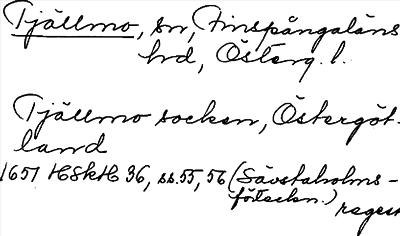 Tjällmo, sn, Finspångaläns
hrd, Österg. l.
Tjällmo socken, Östergöt-
land
1651 HSkH 36, ss. 55, 56 (Sävstaholms-
förteckn.)
regest